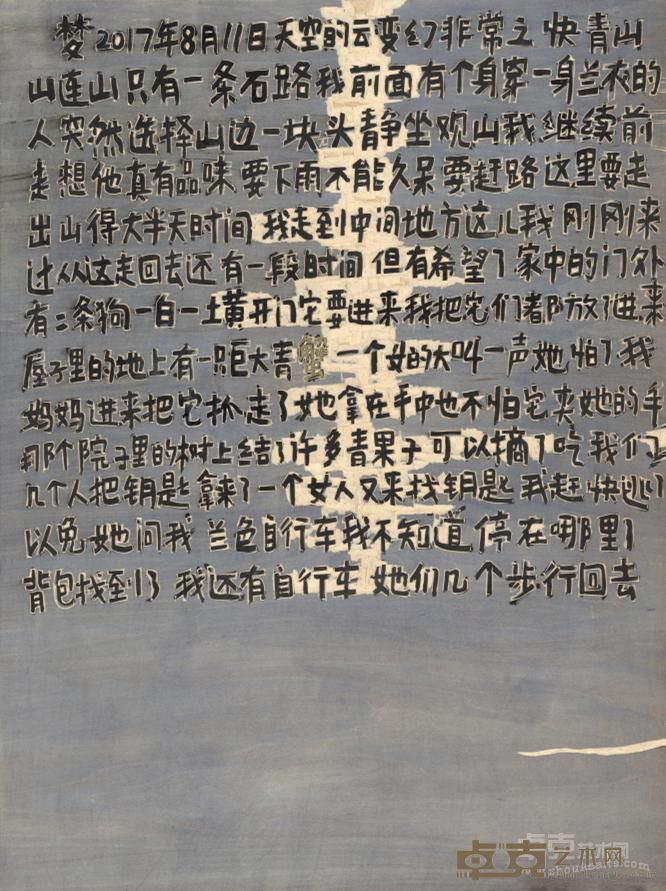 梦2017年8月11日天空的云变幻非常之快青山
山连山只有一条石路我前面有个身穿一身兰衣的
人突然选择山边一块头静坐观山我继续前
走想他真有品味要下雨不能久呆要赶路这里要走
出山得大半天时间我走到中间地方这儿我刚刚来
过从这走回去还有一段时间但有希望了家中的门外
有二条狗一白一土黄开门它要进来我把它们都放了进来
屋子里的地上有一只巨大青蟹一个女的大叫一声她怕了我
妈妈进来把它抓走了她拿在手中也不怕它夹她的手
那个院子里的树上结了许多青果子可以摘了吃我们
几个人把钥匙拿来了一个女人又来找钥匙我赶快逃了
以免她问我兰色自行车我不知道停在哪里了
背包找到了我还有自行车她们几个步行回去
卓克艺术网